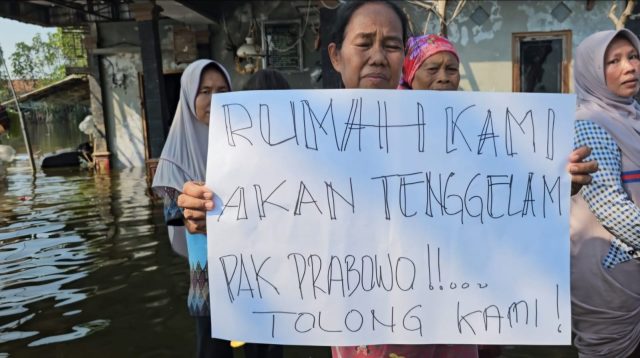 RUMAH KAMI
AKAN TENGGELAM
PAK PRABOWO!!...
TOLONG KAMI!